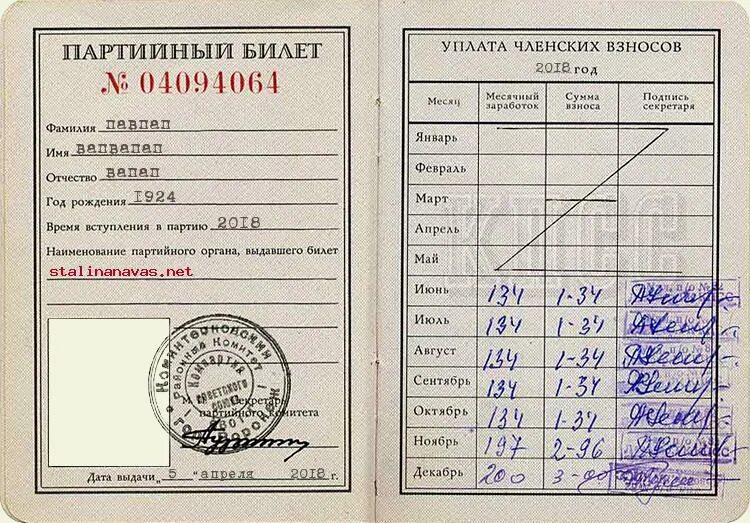 ПАРТИЙНЫЙ БИЛЕТ
№ 04094064
Фамилия павпап
Имя вапвапап
Отчество вапап
Год рождения 1924
Время вступления в партию 2018
Наименование партийного органа, выдавшего билет
stalinanavas.net
Коминтерновский
Районный Комитет
компартии
советского
союза
М Секретарь
партийного комитета
Дата выдачи „ 5 “ апреля 2018 г.
УПЛАТА ЧЛЕНСКИХ ВЗНОСОВ
2018 год
Месяц Месячный заработок Сумма взноса Подпись секретаря
КПСС
Январь
Февраль
Март
Апрель
Май
Июнь 134 1-34
Июль 134 1-34
Август 134 1-34
Сентябрь 134 1-34
Октябрь 134 1-34
Ноябрь 197 2-96
Декабрь 200 3-00